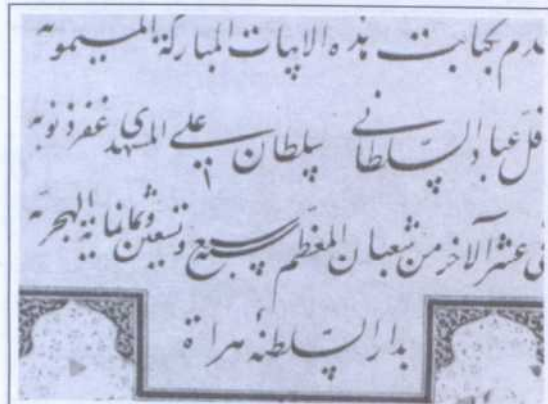 خدم بكتابت هذه الابيات المباركة الميمونه
اقل عباد السلطانى سلطان على المشهدى غفر ذنوبه
فى عشر الآخر من شعبان المعظم سبع وتسعين وثمانماية الهجريه
بدار السلطنۀ هراة